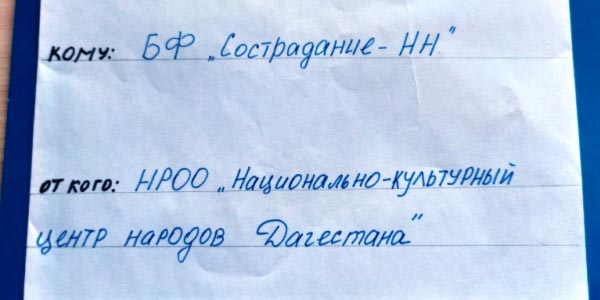 кому: БФ „Сострадание-НН"
от кого: НРОО „Национально-культурный
центр народов Дагестана"